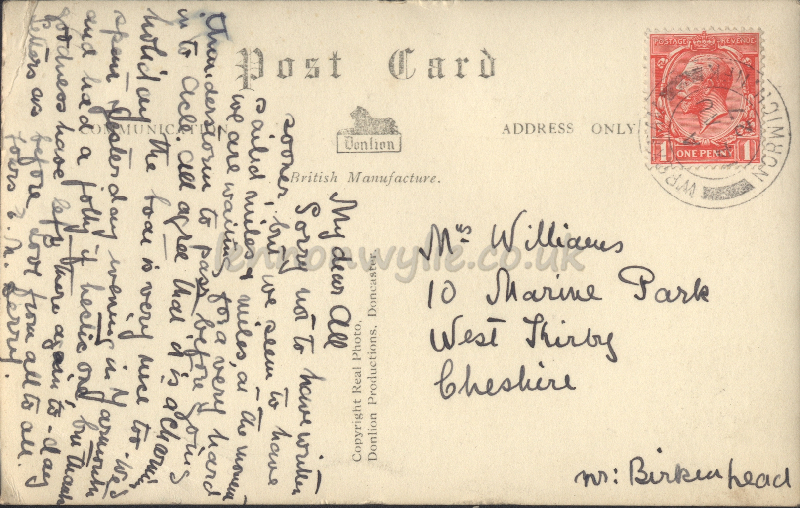 Post Card
COMMUNICATION
Donlion
ADDRESS ONLY
British Manufacture.
POSTAGE REVENUE
1 ONE PENNY 1
My dear All
Sorry not to have written
sooner, but we seem to have
sailed miles & miles, at the moment
we are waiting for a very hard
thunderstorm to pass before going
in to Acle. All agree that it is a charming
holiday the boat is very nice too. We
spent yesterday evening in Yarmouth
and had a jolly if hectic one, but thank
goodness have left there again to-day
letters as before love from all to all.
Yours
Gerry.
Copyright Real Photo,
Donlion Productions, Doncaster.
Mrs Williams
10 Marine Park
West Kirby
Cheshire
nr: Birkenhead
lennonwylie.co.uk